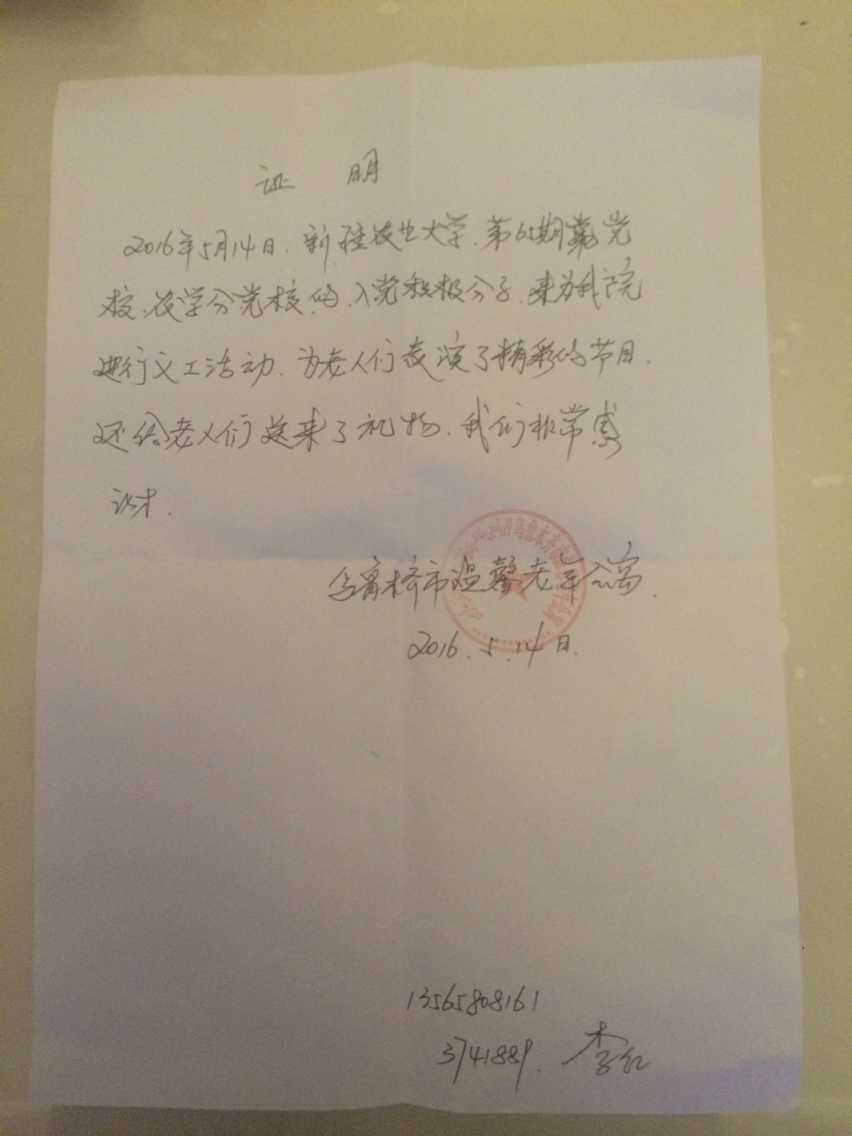 证 明
2016年5月14日.新疆农业大学.第65期党
校.农学分党校.的.入党积极分子.来为我院
进行义工活动.为老人们表演了精彩的节目.
还给老人们送来了礼物.我们非常感
谢.
乌鲁木齐市温馨老年公寓.
2016.5.14日.
13565808161
3741889.李红